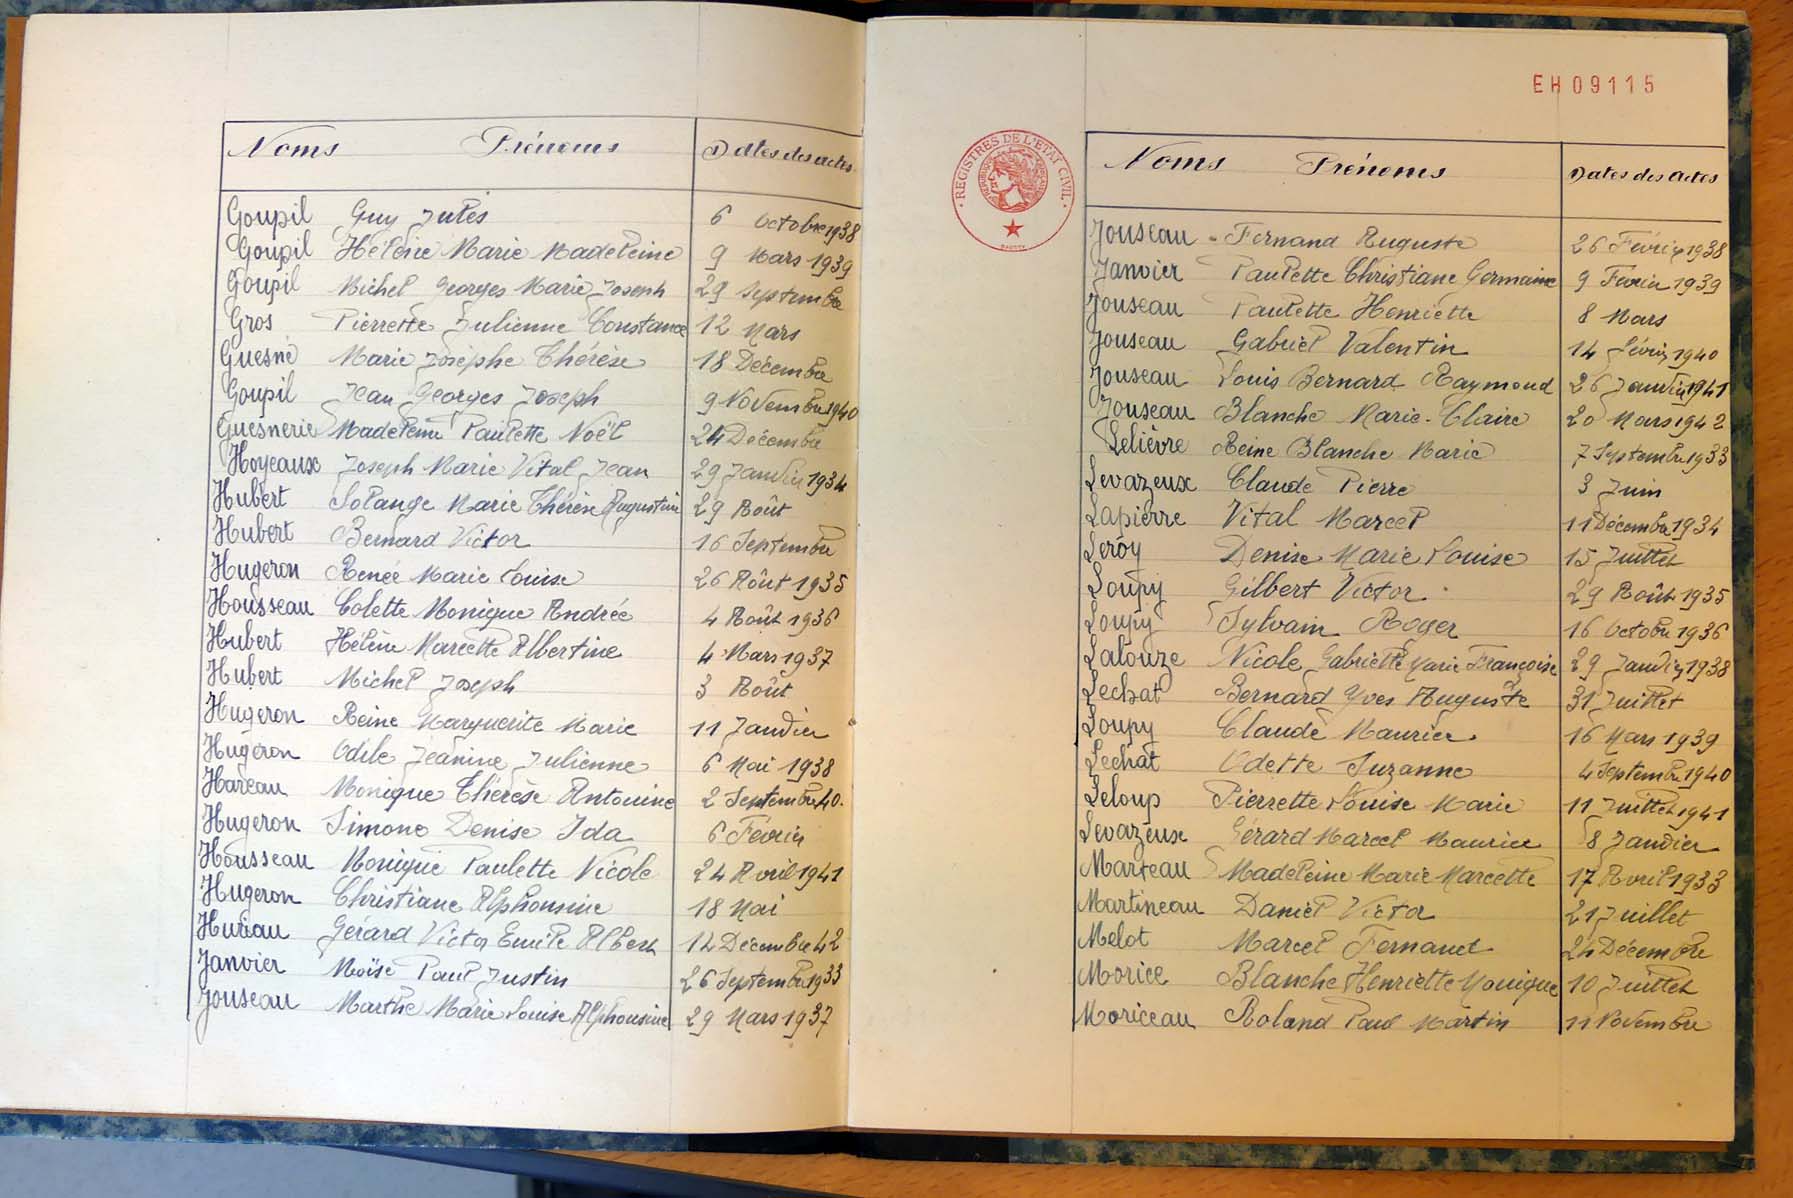 Noms Prénoms Dates des actes
Goupil Guy Jules 6 Octobre 1938
Goupil Hélène Marie Madeleine 9 Mars 1939
Goupil Michel Georges Marie Joseph 29 Septembre
Gros Pierrette Julienne Constance 12 Mars
Guesné Marie Josèphe Thérèse 18 Décembre
Goupil Jean Georges Joseph 9 Novembre 1940
Guesnerie Madeleine Paulette Noël 24 Décembre
Hoyeaux Joseph Marie Vital Jean 29 Janvier 1934
Hubert Solange Marie Thérèse Augustine 29 Août
Hubert Bernard Victor 16 Septembre
Hugeron Renée Marie Louise 26 Août 1935
Housseau Colette Monique Andrée 4 Août 1936
Hubert Hélène Marcelle Albertine 4 Mars 1937
Hubert Michel Joseph 3 Août
Hugeron Reine Marguerite Marie 11 Janvier
Hugeron Odile Jeanine Julienne 6 Mai 1938
Hareau Monique Thérèse Antouine 2 Septembre 40.
Hugeron Simone Denise Ida 6 Février
Housseau Monique Paulette Nicole 24 Avril 1941
Hugeron Christiane Alphonsine 18 Mai
Huriau Gérard Victor Emile Albert 14 Décembre 42
Janvier Moïse Paul Justin 26 Septembre 1933
Jouseau Marthe Marie Louise Alphonsine 29 Mars 1937
EH09115
REGISTRES DE L'ETAT CIVIL
Noms Prénoms Dates des actes
Jouseau Fernand Auguste 26 Février 1938
Janvier Paulette Christiane Germaine 9 Février 1939
Jouseau Paulette Henriette 8 Mars
Jouseau Gabriel Valentin 14 Février 1940
Jouseau Louis Bernard Raymond 26 Janvier 1941
Jouseau Blanche Marie-Claire 20 Mars 1942
Lelièvre Reine Blanche Marie 7 Septembre 1933
Levazeux Claude Pierre 3 Juin
Lapierre Vital Marcel 11 Décembre 1934
Leroy Denise Marie Louise 15 Juillet
Loupy Gilbert Victor 29 Août 1935
Loupy Sylvain Roger 16 Octobre 1936
Lalouze Nicole Gabrielle Marie Françoise 29 Janvier 1938
Lechat Bernard Yves Auguste 31 Juillet
Loupy Claude Maurice 16 Mars 1939
Lechat Odette Suzanne 4 Septembre 1940
Leloup Pierrette Louise Marie 11 Juillet 1941
Levazeux Gérard Marcel Maurice 8 Janvier
Marteau Madeleine Marie Marcelle 17 Avril 1933
Martineau Daniel Victor 21 Juillet
Melot Marcel Fernand 24 Décembre
Morice Blanche Henriette Monique 10 Juillet
Moriceau Roland Paul Martin 11 Novembre